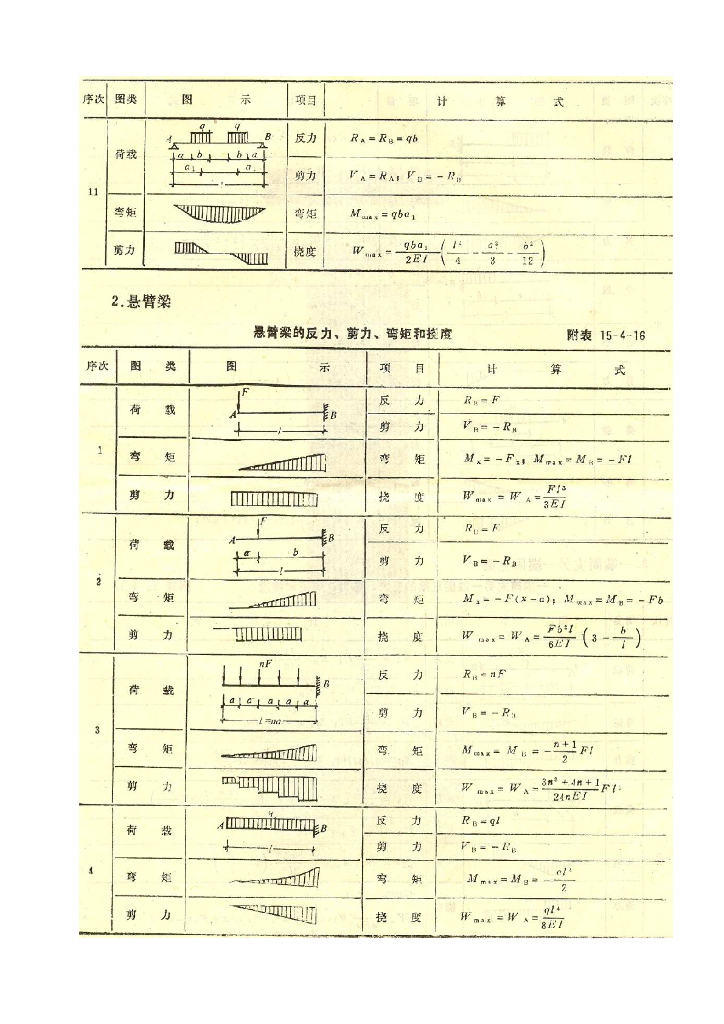 序次 图类 图 示 项目 计 算 式
11
荷载
q q
A B
a b b a
a₁ a₁
l
反力 R_A = R_B = qb
剪力 V_A = R_A; V_B = −R_B
弯矩 弯矩 M_max = qba₁
剪力 挠度 W_max = qba₁/2EI (l²/4 − a₁²/3 − b²/12)
2.悬臂梁
悬臂梁的反力、剪力、弯矩和挠度 附表 15-4-16
序次 图 类 图 示 项 目 计 算 式
1
荷 载
F
A B
l
反 力 R_B = F
剪 力 V_B = −R_B
弯 矩 弯 矩 M_x = −Fx; M_max = M_B = −Fl
剪 力 挠 度 W_max = W_A = Fl³/3EI
2
荷 载
F
A B
a b
l
反 力 R_B = F
剪 力 V_B = −R_B
弯 矩 弯 矩 M_x = −F(x−a); M_max = M_B = −Fb
剪 力 挠 度 W_max = W_A = Fb²l/6EI (3 − b/l)
3
荷 载
nF
B
a a a a a
l=na
反 力 R_B = nF
剪 力 V_B = −R_B
弯 矩 弯 矩 M_max = M_B = −(n+1)/2 Fl
剪 力 挠 度 W_max = W_A = (3n²+4n+1)/24nEI Fl³
4
荷 载
q
A B
l
反 力 R_B = ql
剪 力 V_B = −R_B
弯 矩 弯 矩 M_max = M_B = −ql²/2
剪 力 挠 度 W_max = W_A = ql⁴/8EI